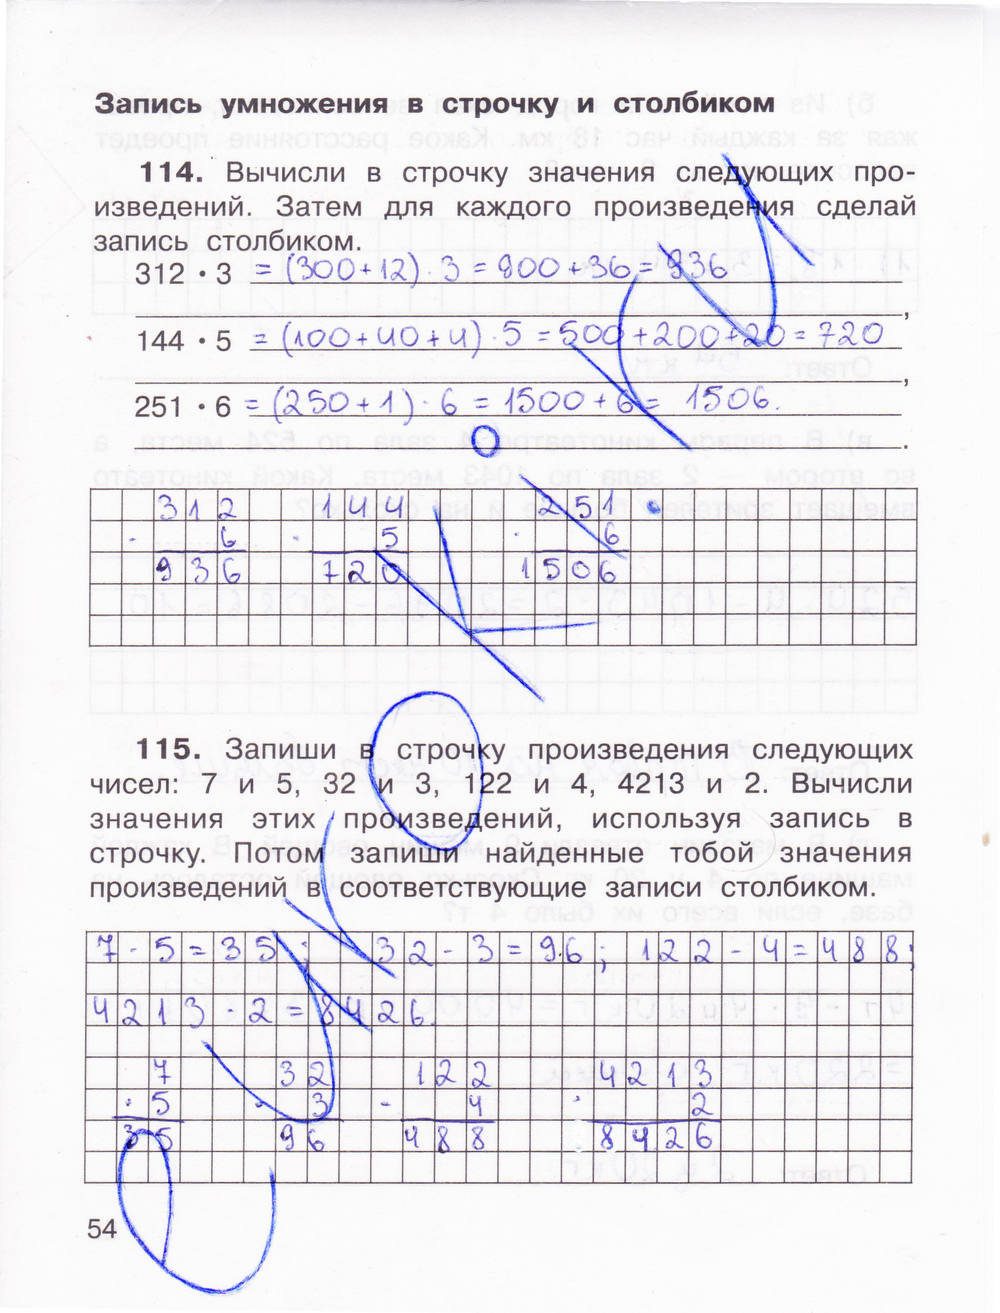 Запись умножения в строчку и столбиком
114. Вычисли в строчку значения следующих про-
изведений. Затем для каждого произведения сделай
запись столбиком.
312 · 3 = (300+12) · 3 = 900 + 36 = 936
,
144 · 5 = (100+40+4) · 5 = 500+200+20 = 720
,
251 · 6 = (250+1) · 6 = 1500+6 = 1506.
.
312 144 251
· 6 · 5 · 6
936 720 1506
115. Запиши в строчку произведения следующих
чисел: 7 и 5, 32 и 3, 122 и 4, 4213 и 2. Вычисли
значения этих произведений, используя запись в
строчку. Потом запиши найденные тобой значения
произведений в соответствующие записи столбиком.
7 · 5 = 35; 32 · 3 = 96; 122 · 4 = 488;
4213 · 2 = 8426.
7 32 122 4213
· 5 · 3 · 4 · 2
35 96 488 8426
54